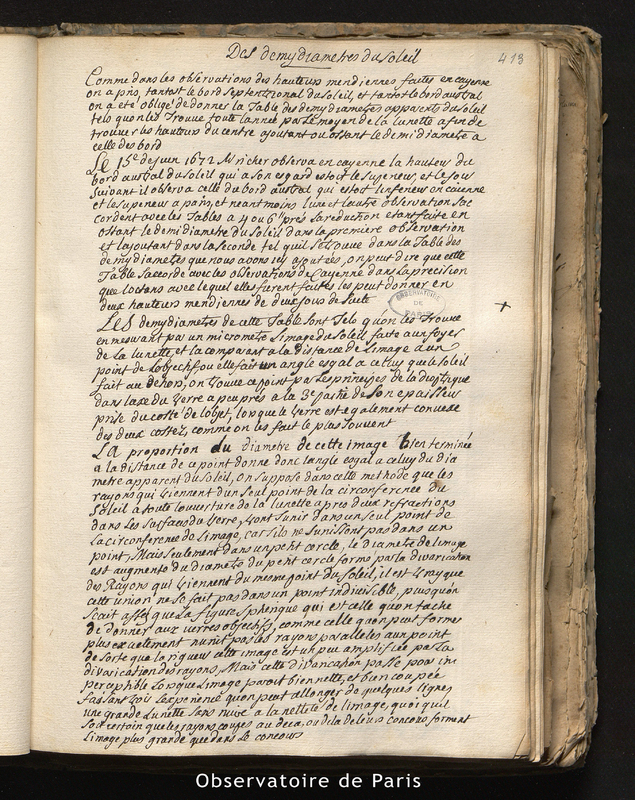 Des demydiametres du soleil
413
Comme dans les observations des hauteurs meridiennes faites en cayenne
on a pris, tantost le bord septentrional du soleil, et tantost le bord austral
on a eté obligé de donner la Table des demydiametres apparents du soleil
tels quon les Trouve toute lannée par le moyen de la lunette afin de
trouver les hauteurs du centre ajoutant ou ostant le demidiametre a
celle des bord
Le 15e de juin 1672 Mr richer observa en cayenne la hauteur du
bord austral du soleil qui a son esgard estoit le superieur, et le jour
suivant il observa celle du bord austral qui estoit linferieur en caienne
et le superieur a paris, et neantmoins lune et lautre observation sac
cordent avec les Tables a 4 ou 6" prés la reduction estant faite en
ostant le demidiametre du soleil dans la premiere observation
et lajoutant dans la seconde tel quil se trouve dans la Table des
demydiametres que nous avons icy ajoutées, on peut dire que cette
Table saccorde avec les observations de Cayenne dans la precision
que loctans avec lequel elles furent faites les peut donner en
deux hauteurs meridiennes de deux jours de suite
OBSERVATOIRE
DE
PARIS
Les demydiametres de cette Table sont Tels quon les Trouve
en mesurant par un micrometre limage du soleil faite au foyer
de la lunette, et la comparant a la distance de limage a un
point de lobjectif ou elle fait un angle esgal a celuy que le soleil
fait au dehors, on Trouve ce point par les principes de la dioptrique
dans laxe du verre a peu prés a la 3e partie de son epaisseur
prise du costé de lobjet, lorsque le verre est egalement convexe
des deux costez, comme on les fait le plus souvent
La proportion du diametre de cette image bien terminée
a la distance de ce point donne donc langle esgal a celuy du dia
metre apparent du soleil, on suppose dans cette methode que les
rayons qui viennent dun seul point de la circonference du
soleil a toute louverture de la lunette apres deux refractions
dans les surfaces du verre, vont sunir dans un seul point de
la circonference de limage, car sils ne sunissent pas dans un
point, Mais seulement dans un petit cercle, le diametre de limage
est augmenté du diametre du petit cercle formé par la divarication
des Rayons qui viennent du mesme point du soleil, il est vray que
cette union ne se fait pas dans un point indivisible, puisquon
scait assés que la figure spherique qui est celle quon tache
de donner aux verres objectifs, comme celle quon peut former
plus exactement nunit pas les rayons paralleles au point
de sorte que la rigueur cette image est un peu amplifiée par la
divarication des rayons, Mais cette divarication passe pour im
perceptible lorsque limage paroit bien nette, et bien coupée
faisant voir lexperience quon peut allonger de quelques lignes
une grande Lunette sans nuire a la netteté de limage, quoi quil
soit certain que les rayons coupés au deca, ou dela de leurs concours forment
limage plus grande que dans le concours
Observatoire de Paris